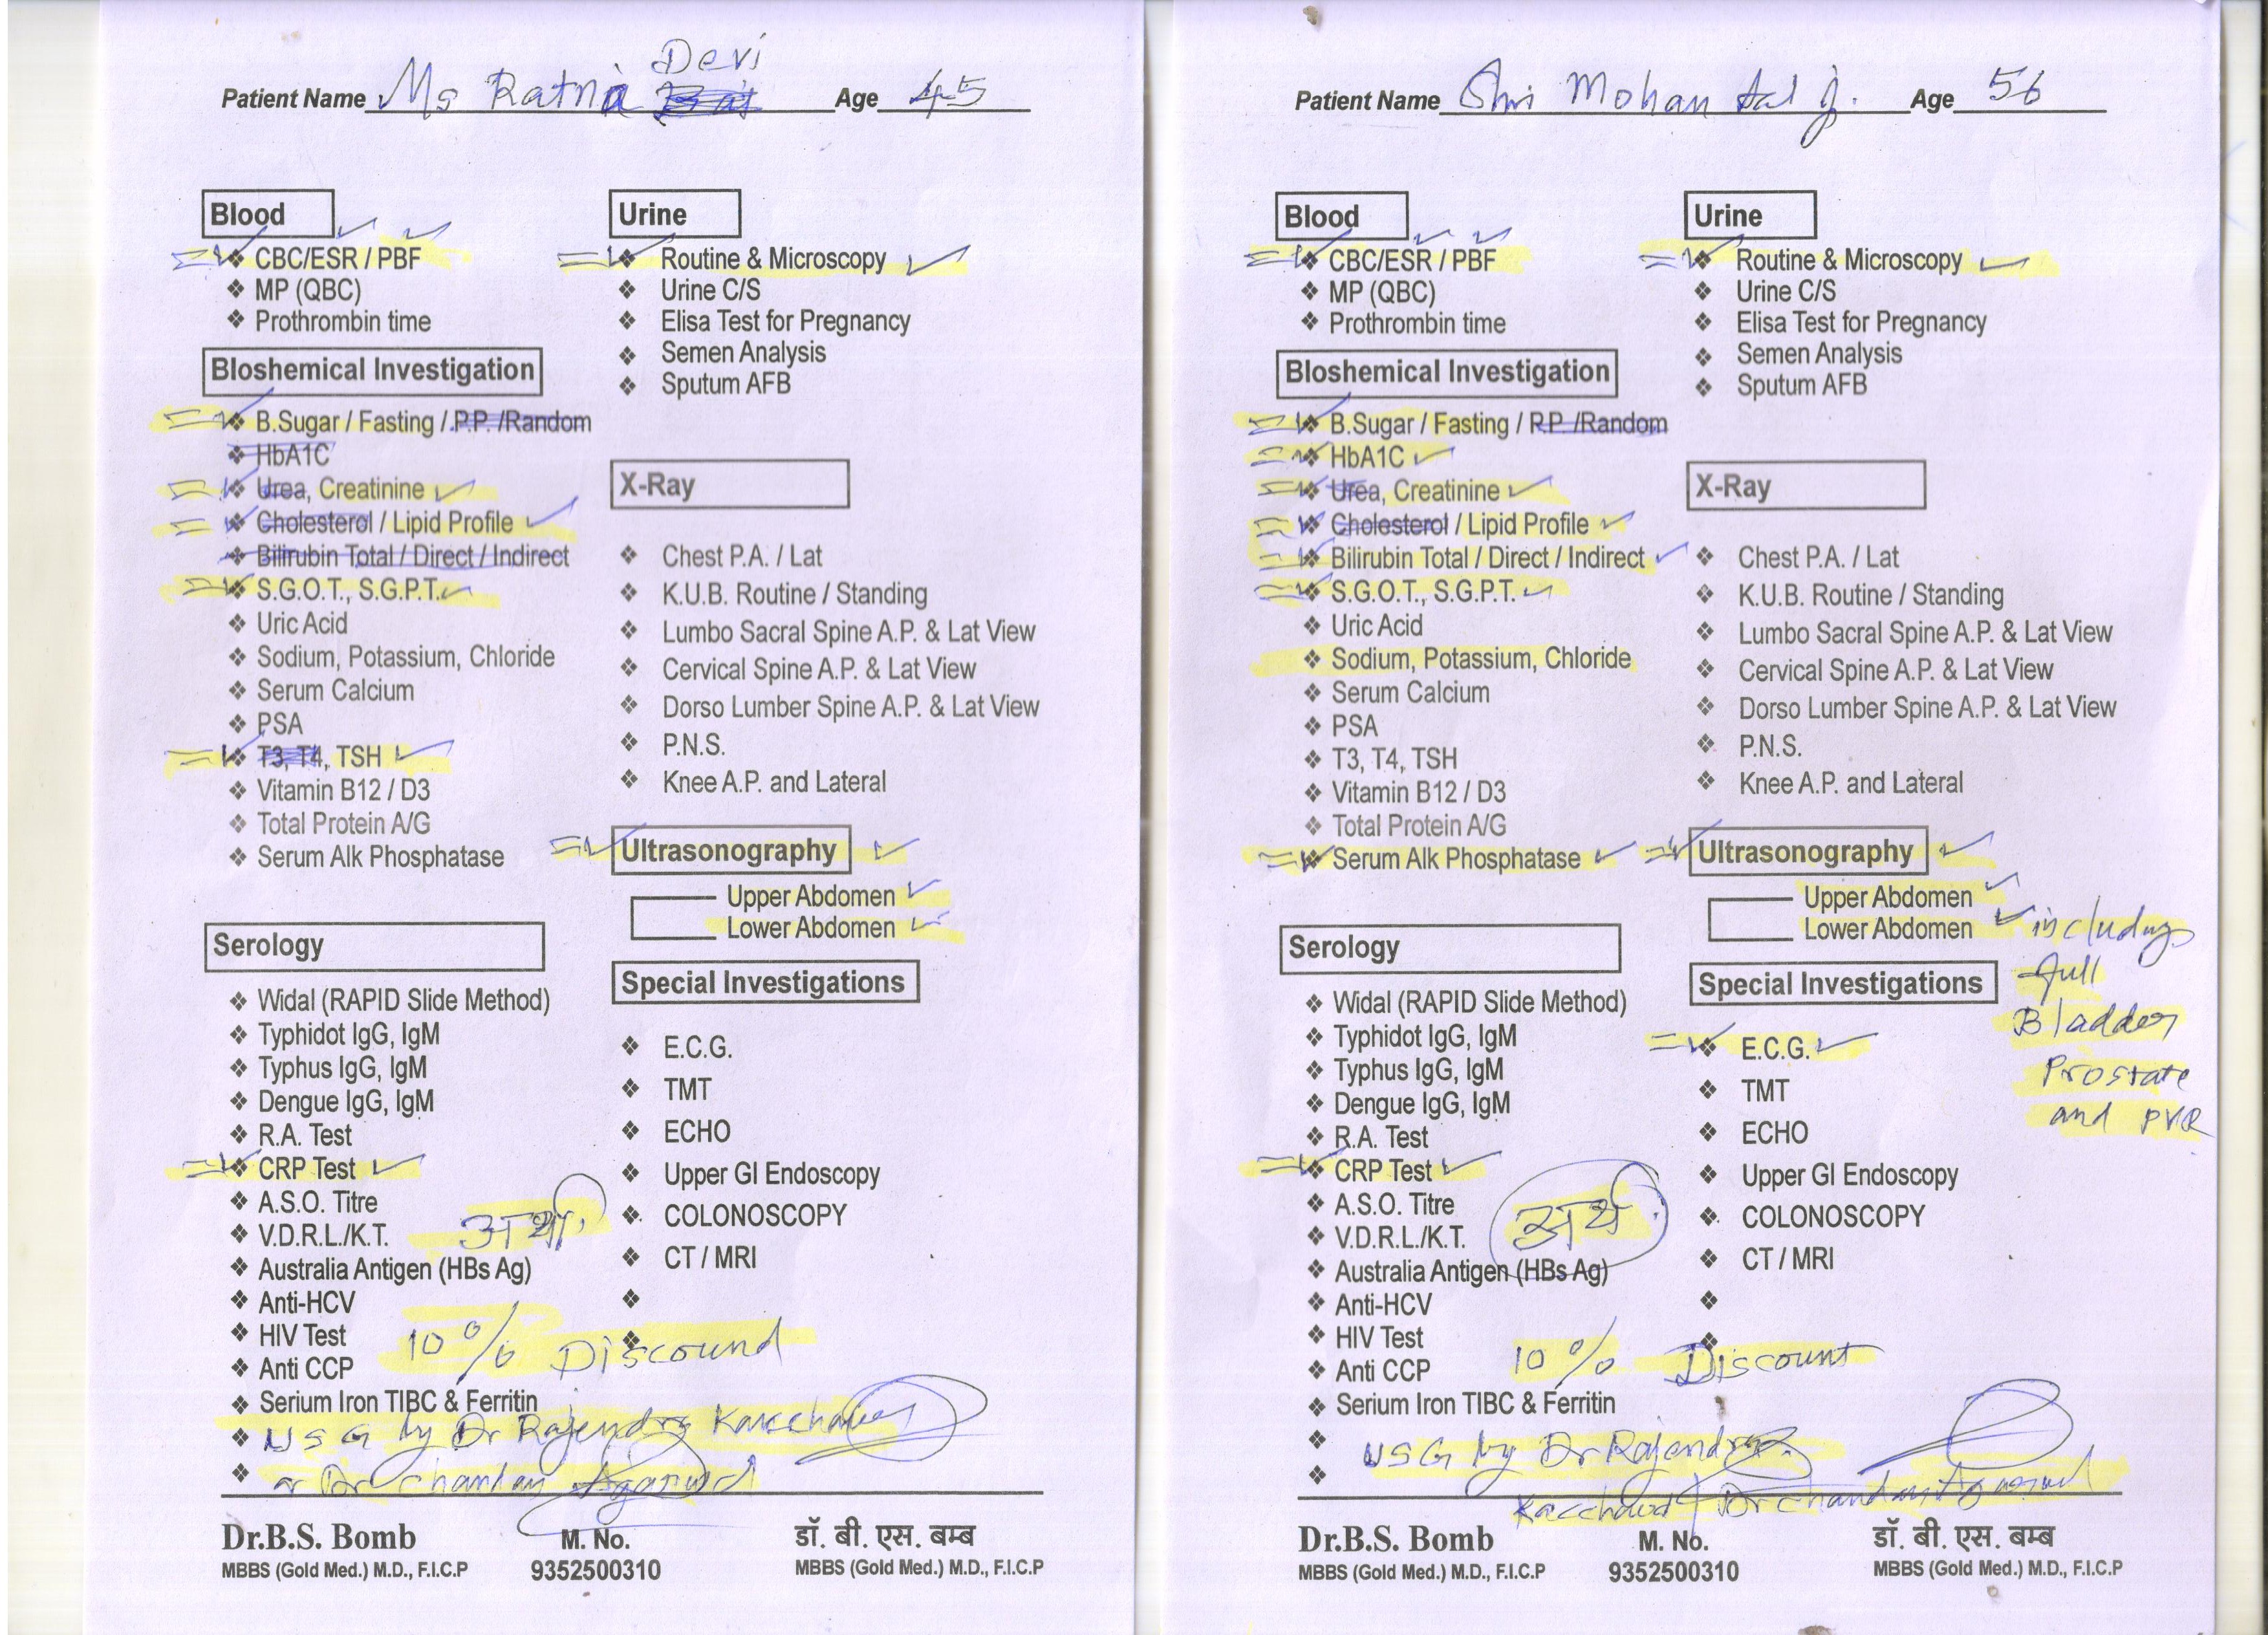 Devi
Patient Name Ms Ratna Age 45
Blood
CBC/ESR / PBF
MP (QBC)
Prothrombin time
Bloshemical Investigation
B.Sugar / Fasting / P.P. /Random
HbA1C
Urea, Creatinine
Cholesterol / Lipid Profile
Bilirubin Total / Direct / Indirect
S.G.O.T., S.G.P.T.
Uric Acid
Sodium, Potassium, Chloride
Serum Calcium
PSA
T3, T4, TSH
Vitamin B12 / D3
Total Protein A/G
Serum Alk Phosphatase
Serology
Widal (RAPID Slide Method)
Typhidot IgG, IgM
Typhus IgG, IgM
Dengue IgG, IgM
R.A. Test
CRP Test
A.S.O. Titre
V.D.R.L./K.T.
Australia Antigen (HBs Ag)
Anti-HCV
HIV Test
Anti CCP
Serium Iron TIBC & Ferritin
Urine
Routine & Microscopy
Urine C/S
Elisa Test for Pregnancy
Semen Analysis
Sputum AFB
X-Ray
Chest P.A. / Lat
K.U.B. Routine / Standing
Lumbo Sacral Spine A.P. & Lat View
Cervical Spine A.P. & Lat View
Dorso Lumber Spine A.P. & Lat View
P.N.S.
Knee A.P. and Lateral
Ultrasonography
Upper Abdomen
Lower Abdomen
Special Investigations
E.C.G.
TMT
ECHO
Upper GI Endoscopy
COLONOSCOPY
CT / MRI
10% Discound
USG by Dr Rajendra
Dr Chandan Agarwal
Dr.B.S. Bomb M. No. डॉ. बी. एस. बम्ब
MBBS (Gold Med.) M.D., F.I.C.P 9352500310 MBBS (Gold Med.) M.D., F.I.C.P
Patient Name Shri Mohan Lal ji. Age 56
Blood
CBC/ESR / PBF
MP (QBC)
Prothrombin time
Bloshemical Investigation
B.Sugar / Fasting / P.P. /Random
HbA1C
Urea, Creatinine
Cholesterol / Lipid Profile
Bilirubin Total / Direct / Indirect
S.G.O.T., S.G.P.T.
Uric Acid
Sodium, Potassium, Chloride
Serum Calcium
PSA
T3, T4, TSH
Vitamin B12 / D3
Total Protein A/G
Serum Alk Phosphatase
Serology
Widal (RAPID Slide Method)
Typhidot IgG, IgM
Typhus IgG, IgM
Dengue IgG, IgM
R.A. Test
CRP Test
A.S.O. Titre
V.D.R.L./K.T.
Australia Antigen (HBs Ag)
Anti-HCV
HIV Test
Anti CCP
Serium Iron TIBC & Ferritin
Urine
Routine & Microscopy
Urine C/S
Elisa Test for Pregnancy
Semen Analysis
Sputum AFB
X-Ray
Chest P.A. / Lat
K.U.B. Routine / Standing
Lumbo Sacral Spine A.P. & Lat View
Cervical Spine A.P. & Lat View
Dorso Lumber Spine A.P. & Lat View
P.N.S.
Knee A.P. and Lateral
Ultrasonography
Upper Abdomen
Lower Abdomen
includng
full
Bladder
Prostate
and PVR
Special Investigations
E.C.G.
TMT
ECHO
Upper GI Endoscopy
COLONOSCOPY
CT / MRI
अर्थ
10% Discount
USG by Dr Rajendra
Dr Chandan Agarwal
Dr.B.S. Bomb M. No. डॉ. बी. एस. बम्ब
MBBS (Gold Med.) M.D., F.I.C.P 9352500310 MBBS (Gold Med.) M.D., F.I.C.P